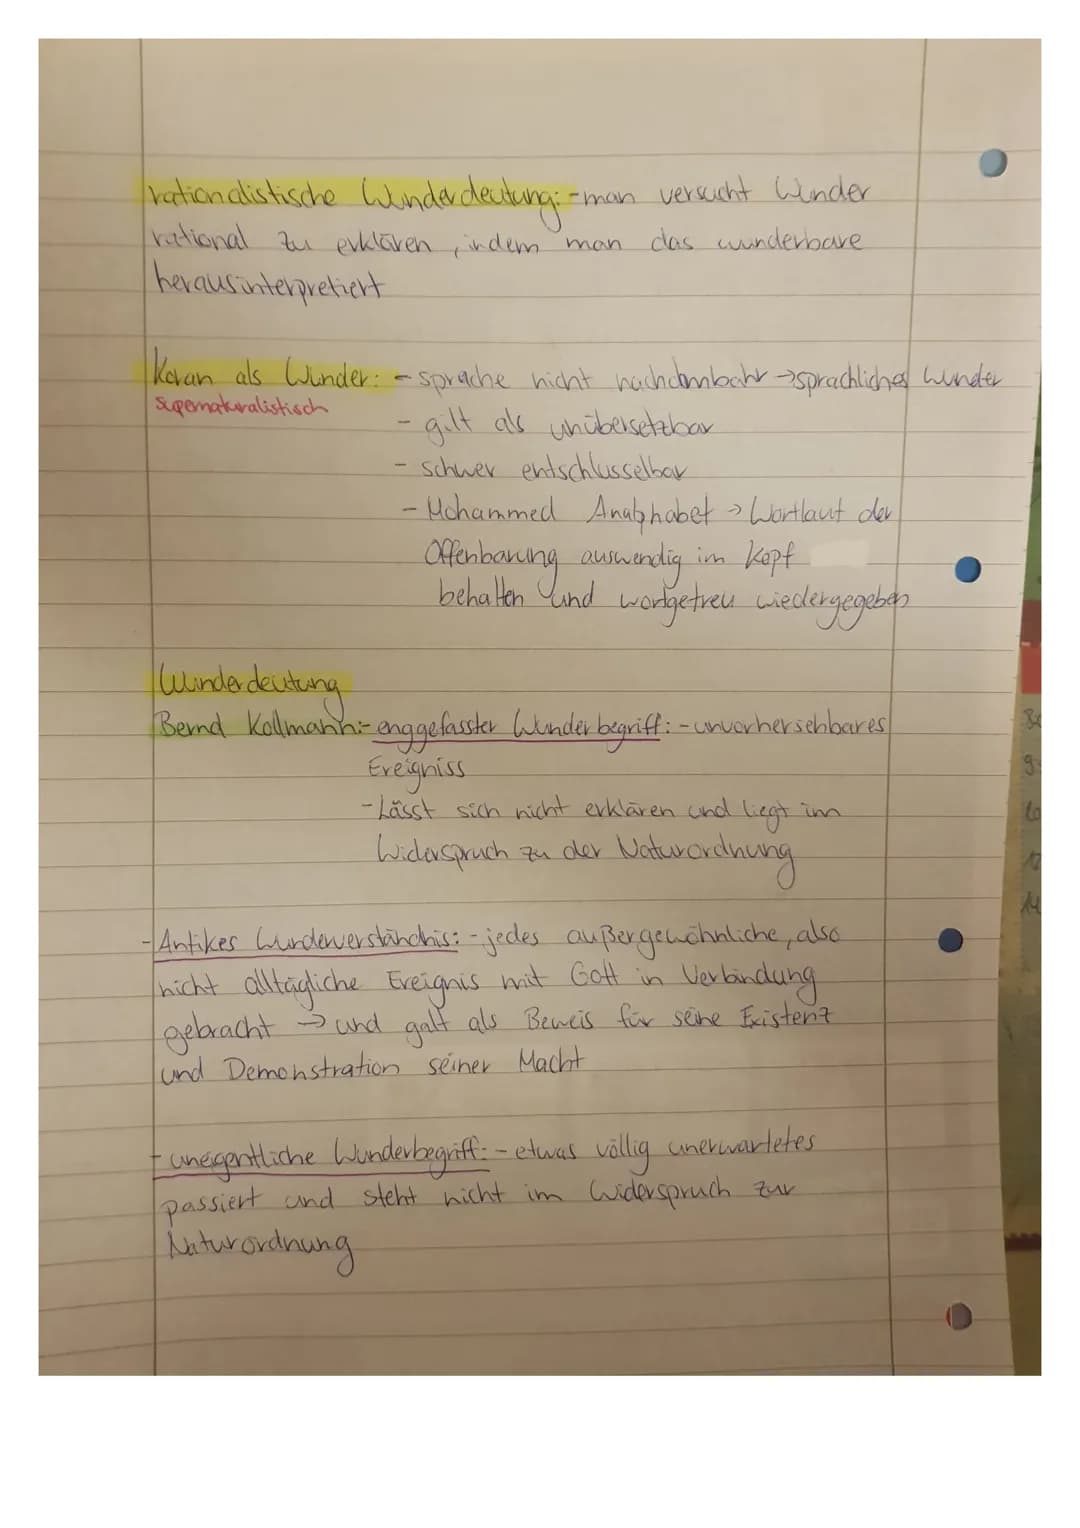 rationalistische Wunderdeutung: - man versucht Wunder
rational zu erklären, indem man das wunderbare
herausinterpretiert
Koran als Wunder: - sprache nicht nachahmbahr → sprachliches Wunder
supernaturalistisch
- gilt als unübersetzbar
- schwer entschlusselbar
- Mohammed Analphabet → Wortlaut der
Offenbarung auswendig im Kopf
behalten und wortgetreu wiedergegeben
Wunderdeutung
Bernd Kollmann: - enggefasster Wunderbegriff: - unvorhersehbares
Ereigniss
- Lässt sich nicht erklären und liegt im
Widerspruch zu der Naturordnung
- Antikes Wunderverständnis: - jedes außergewöhnliche, also
nicht alltägliche Ereignis mit Gott in Verbindung
gebracht → und galt als Beweis für seine Existenz
und Demonstration seiner Macht
- uneigentliche Wunderbegriff: - etwas völlig unerwartetes
passiert und steht nicht im Widerspruch zur
Naturordnung